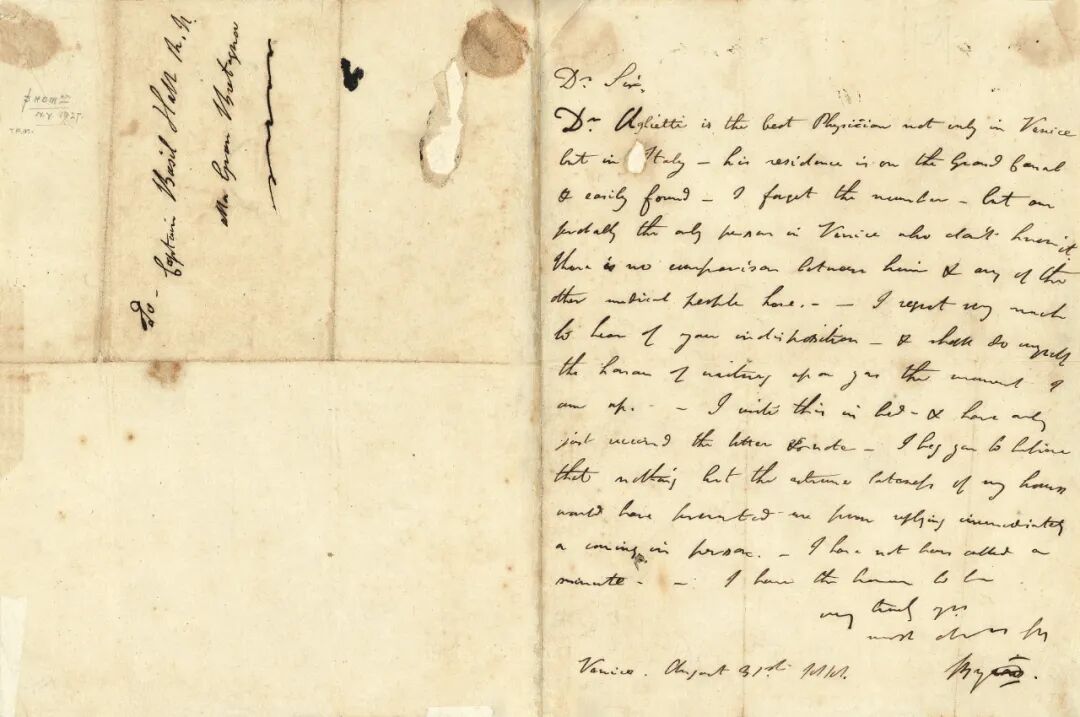 To - Captain Basil Hall R. N.
Alla Gran Bretagna
N.Y. 1925.
Dr. Sir,
Dr. Aglietti is the best Physician not only in Venice
but in Italy - his residence is on the Grand Canal
& easily found - I forget the number - but am
probably the only person in Venice who don't know it.
There is no comparison between him & any of the
other medical people here. - - I regret very much
to hear of your indisposition - & shall do myself
the honour of waiting upon you the moment I
am up. - - I write this in bed - & have only
just received the letter & note - I beg you to believe
that nothing but the extreme lateness of my hours
would have prevented me from replying immediately
or coming in person. - I have not been called a
minute - - I have the honour to be
very truly yrs
most obt st
Venice. August 31st 1818.
Byron.